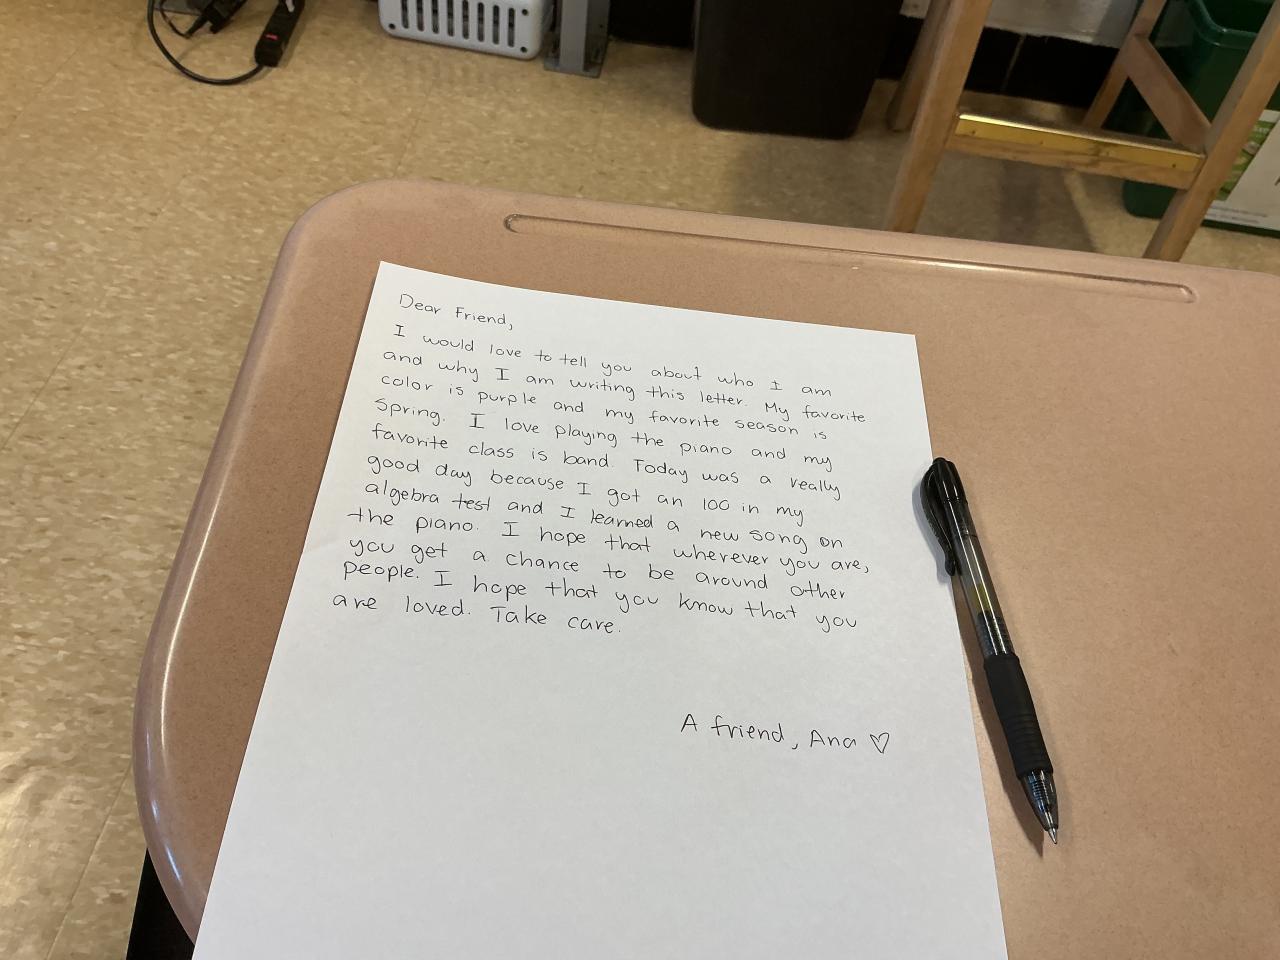 Dear Friend,
I would love to tell you about who I am
and why I am writing this letter. My favorite
color is purple and my favorite season is
Spring. I love playing the piano and my
favorite class is band. Today was a really
good day because I got an 100 in my
algebra test and I learned a new song on
the piano. I hope that wherever you are,
you get a chance to be around other
people. I hope that you know that you
are loved. Take care.
A friend, Ana ♡